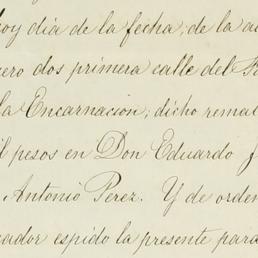 hoy dia de la fecha, de la a
ero dos primera calle del
la Encarnacion; dicho remat
il pesos en Don Eduardo
Antonio Perez. Y de orden
ador espido la presente para